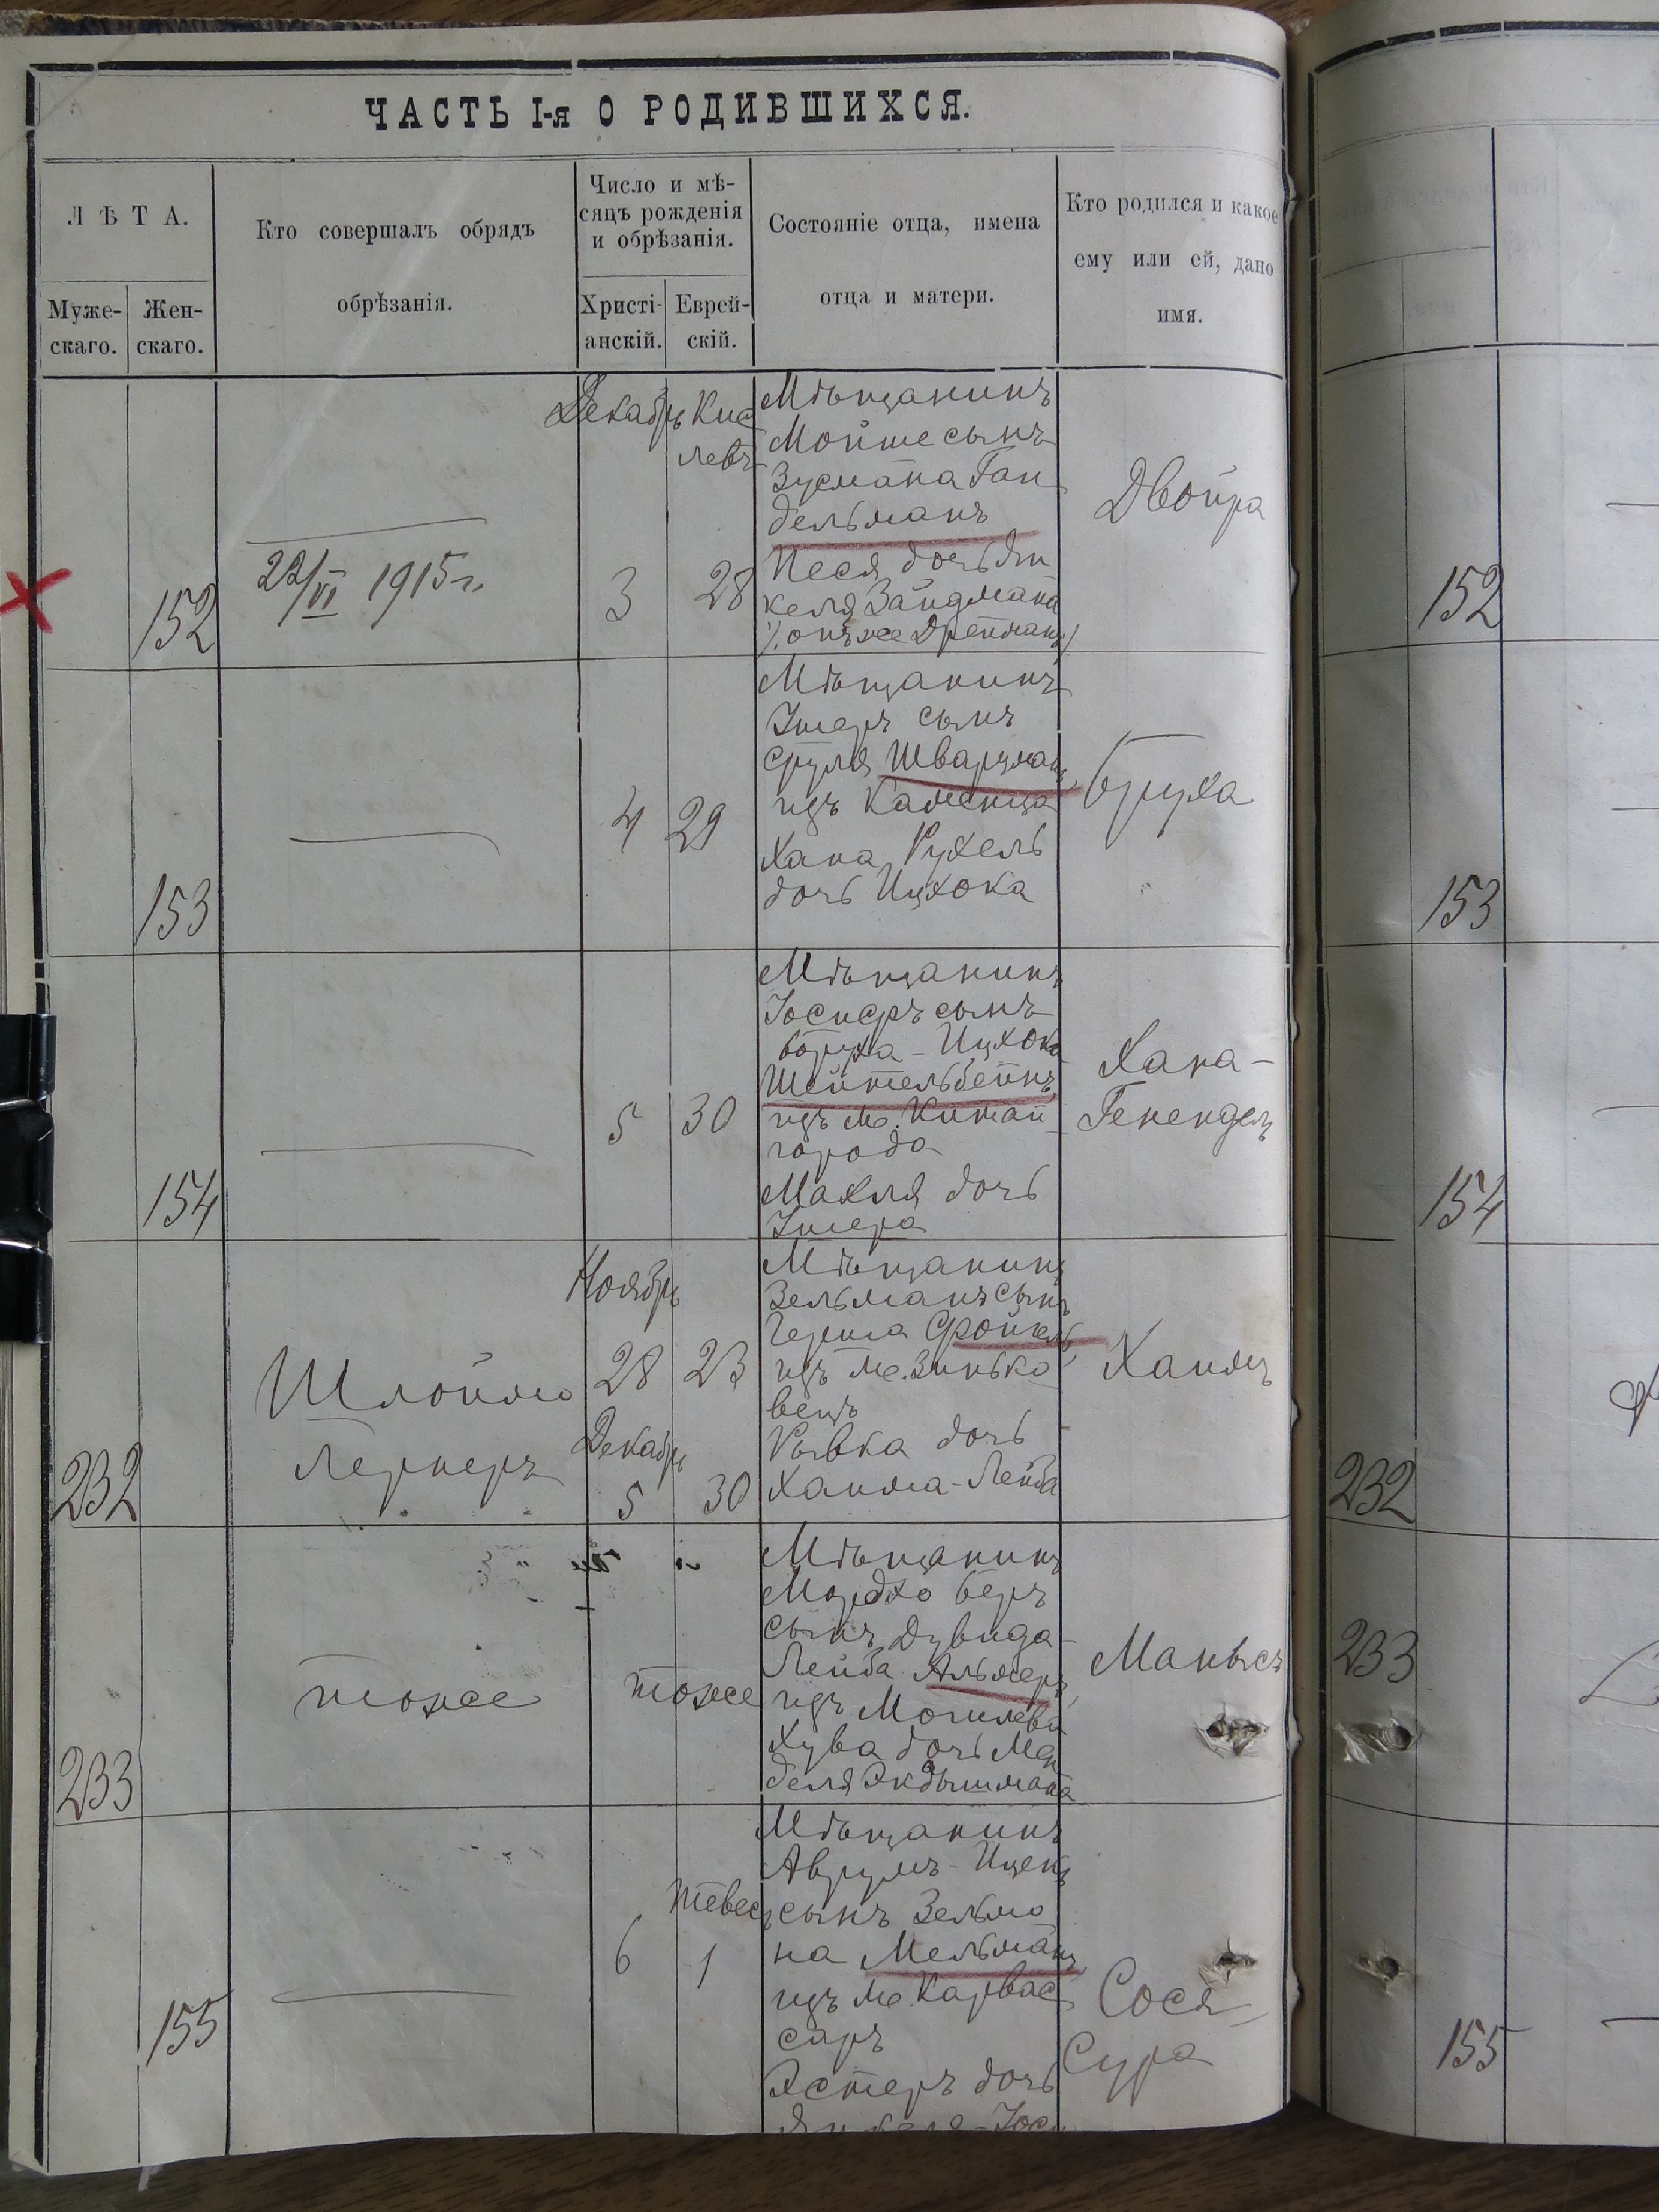 ЧАСТЬ I-я О РОДИВШИХСЯ.
ЛѢТА.
Муже-
скаго.
Жен-
скаго.
Кто совершалъ обрядъ
обрѣзанія.
Число и мѣ-
сяцъ рожденія
и обрѣзанія.
Христі-
анскій.
Еврей-
скій.
Состояніе отца, имена
отца и матери.
Кто родился и какое
ему или ей, дано
имя.
152
22/VI 1915 г.
Декабрь
3
Кис
левъ
28
Мѣщанинъ
Мойше сынъ
Зусмана Ган
дельманъ
Песя дочь Ян
келя Зайдмана
/. онъ же Дрейманъ /
Двойра
152
153
4
29
Мѣщанинъ
Умеръ сынъ
Сруля Шварцманъ
изъ Каменца
Хана Рухель
дочь Ицхока
Бруха
153
154
5
30
Мѣщанинъ
Іосиферъ сынъ
Боруха-Ицхока
Шейтельбеймъ
изъ м. Китай
города
Махля дочь
Умера
Хана-
Генендель
154
232
Шлоймо
Лернеръ
Ноябрь
28
23
Декабрь
5
30
Мѣщанинъ
Зельманъ сынъ
Герша Фройкель
изъ м. Зинько
вецъ
Рывка дочь
Хаима-Лейба
Хаимъ
232
233
тоже
тоже
Мѣщанинъ
Мордхо Беръ
сынъ Дувида-
Лейба Альтеръ
изъ Могилева
Хува дочь Мен
деля Экдышмана
Манысъ
233
155
6
Тевесъ
1
Мѣщанинъ
Аврумъ-Ицекъ
сынъ Зельмо
на Мельманъ
изъ м. Карвас
саръ
Эстеръ дочь
Янкеля-Іос
Сося-
Сура
155